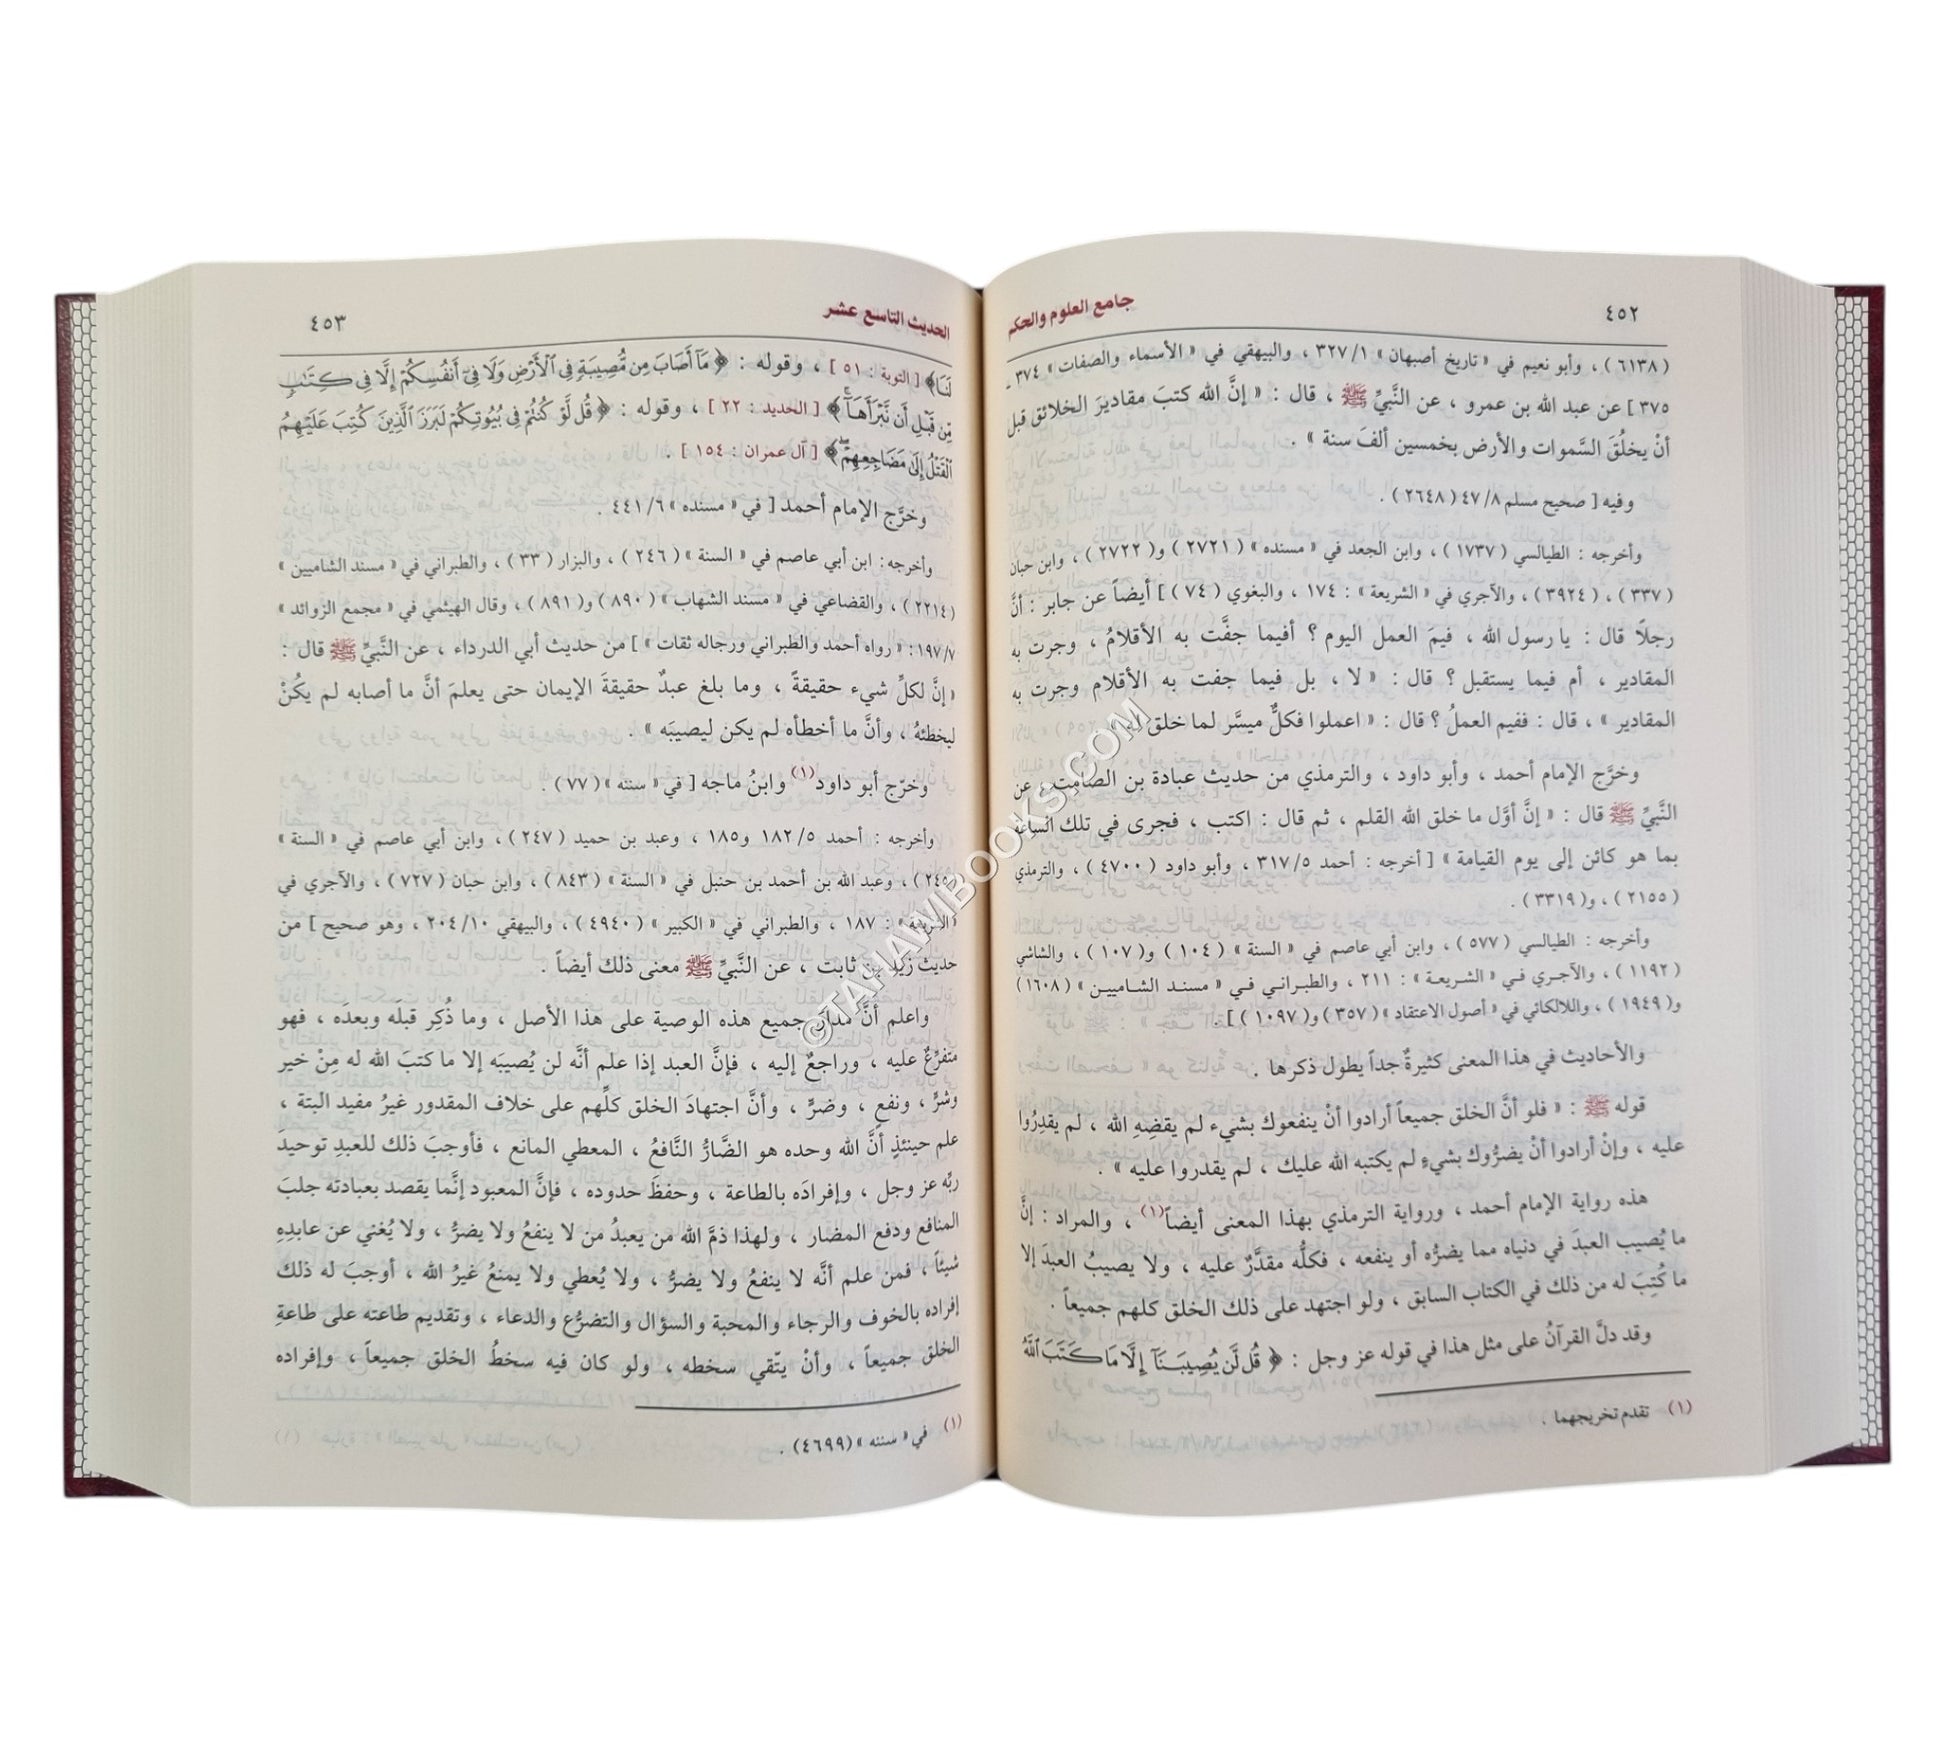 ٤٥٢
جامع العلوم والحكم
( ٦١٣٨ ) ، وأبو نعيم في « تاريخ أصبهان » ٣٢٧/١ ، والبيهقي في « الأسماء والصفات » ٣٧٤ ـ
٣٧٥ ] عن عبد الله بن عمرو ، عن النَّبيِّ ﷺ ، قال : « إنَّ الله كتبَ مقاديرَ الخلائق قبل
أنْ يخلُقَ السَّموات والأرض بخمسين ألفَ سنة » .
وفيه [ صحيح مسلم ٤٧/٨ ( ٢٦٤٨ ) .
وأخرجه : الطيالسي ( ١٧٣٧ ) ، وابن الجعد في « مسنده » ( ٢٧٢١ ) و( ٢٧٢٢ ) ، وابن حبان
( ٣٣٧ ) ، ( ٣٩٢٤ ) ، والآجري في « الشريعة » : ١٧٤ ، والبغوي ( ٧٤ ) ] أيضاً عن جابر : أنَّ
رجلًا قال : يا رسول الله ، فيمَ العمل اليوم ؟ أفيما جفَّت به الأقلامُ ، وجرت به
المقادير ، أم فيما يستقبل ؟ قال : « لا ، بل فيما جفت به الأقلام وجرت به
المقادير » ، قال : ففيم العملُ ؟ قال : « اعملوا فكلٌّ ميسَّر لما خلق له » .
وخرَّج الإمام أحمد ، وأبو داود ، والترمذي من حديث عبادة بن الصامِت ، عن
النَّبيِّ ﷺ قال : « إنَّ أوَّل ما خلق الله القلم ، ثم قال : اكتب ، فجرى في تلك الساعة
بما هو كائن إلى يوم القيامة » [ أخرجه : أحمد ٣١٧/٥ ، وأبو داود ( ٤٧٠٠ ) ، والترمذي
( ٢١٥٥ ) ، و( ٣٣١٩ ) .
وأخرجه : الطيالسي ( ٥٧٧ ) ، وابن أبي عاصم في « السنة » ( ١٠٤ ) و( ١٠٧ ) ، والشاشي
( ١١٩٢ ) ، والآجري في « الشريعة » : ٢١١ ، والطبراني في « مسند الشاميين » ( ١٦٠٨ )
و( ١٩٤٩ ) ، واللالكائي في « أصول الاعتقاد » ( ٣٥٧ ) و( ١٠٩٧ ) ] .
والأحاديث في هذا المعنى كثيرةٌ جداً يطول ذكرها .
قوله ﷺ : « فلو أنَّ الخلق جميعاً أرادوا أنْ ينفعوك بشيء لم يقضِهِ الله ، لم يقدِرُوا
عليه ، وإنْ أرادوا أنْ يضرُّوك بشيءٍ لم يكتبه الله عليك ، لم يقدروا عليه » .
هذه رواية الإمام أحمد ، ورواية الترمذي بهذا المعنى أيضاً(١) ، والمراد : إنَّ
ما يُصيب العبدَ في دنياه مما يضرُّه أو ينفعه ، فكلُّه مقدَّرٌ عليه ، ولا يصيبُ العبدَ إلا
ما كُتِبَ له من ذلك في الكتاب السابق ، ولو اجتهد على ذلك الخلق كلهم جميعاً .
وقد دلَّ القرآنُ على مثل هذا في قوله عز وجل : ﴿ قُل لَّن يُصِيبَنَآ إِلَّا مَا كَتَبَ ٱللَّهُ
(١) تقدم تخريجهما .
الحديث التاسع عشر
٤٥٣
لَنَا﴾ [ التوبة : ٥١ ] ، وقوله : ﴿ مَآ أَصَابَ مِن مُّصِيبَةٍ فِي ٱلْأَرْضِ وَلَا فِيٓ أَنفُسِكُمْ إِلَّا فِي كِتَٰبٍ
مِّن قَبْلِ أَن نَّبْرَأَهَآ﴾ [ الحديد : ٢٢ ] ، وقوله : ﴿ قُل لَّوْ كُنتُمْ فِي بُيُوتِكُمْ لَبَرَزَ ٱلَّذِينَ كُتِبَ عَلَيْهِمُ
ٱلْقَتْلُ إِلَىٰ مَضَاجِعِهِمْ﴾ [ آل عمران : ١٥٤ ] .
وخرَّج الإمام أحمد [ في « مسنده » ٤٤١/٦ .
وأخرجه : ابن أبي عاصم في « السنة » ( ٢٤٦ ) ، والبزار ( ٣٣ ) ، والطبراني في « مسند الشاميين »
( ٢٢١٤ ) ، والقضاعي في « مسند الشهاب » ( ٨٩٠ ) و( ٨٩١ ) ، وقال الهيثمي في « مجمع الزوائد »
١٩٧/٧ : « رواه أحمد والطبراني ورجاله ثقات » ] من حديث أبي الدرداء ، عن النَّبيِّ ﷺ قال :
« إنَّ لكلِّ شيء حقيقةً ، وما بلغ عبدٌ حقيقةَ الإيمان حتى يعلمَ أنَّ ما أصابه لم يكُنْ
ليخطئهُ ، وأنَّ ما أخطأه لم يكن ليصيبَه » .
وخرّج أبو داود(١) وابنُ ماجه [ في « سننه » ( ٧٧ ) .
وأخرجه : أحمد ١٨٢/٥ و١٨٥ ، وعبد بن حميد ( ٢٤٧ ) ، وابن أبي عاصم في « السنة »
( ٢٤٥ ) ، وعبد الله بن أحمد بن حنبل في « السنة » ( ٨٤٣ ) ، وابن حبان ( ٧٢٧ ) ، والآجري في
« الشريعة » : ١٨٧ ، والطبراني في « الكبير » ( ٤٩٤٠ ) ، والبيهقي ٢٠٤/١٠ ، وهو صحيح ] من
حديث زيد بن ثابت ، عن النَّبيِّ ﷺ معنى ذلك أيضاً .
واعلم أنَّ مدارَ جميع هذه الوصية على هذا الأصل ، وما ذُكِر قبلَه وبعدَه ، فهو
متفرِّعٌ عليه ، وراجعٌ إليه ، فإنَّ العبد إذا علم أنَّه لن يُصيبَه إلا ما كتبَ الله له مِنْ خير
وشرٍّ ، ونفعٍ ، وضرٍّ ، وأنَّ اجتهادَ الخلق كلِّهم على خلاف المقدور غيرُ مفيد البتة ،
علم حينئذٍ أنَّ الله وحده هو الضَّارُّ النَّافعُ ، المعطي المانع ، فأوجبَ ذلك للعبدِ توحيدَ
ربِّه عز وجل ، وإفرادَه بالطاعة ، وحفظَ حدوده ، فإنَّ المعبود إنَّما يقصد بعبادته جلبَ
المنافع ودفع المضار ، ولهذا ذمَّ الله من يعبدُ من لا ينفعُ ولا يضرُّ ، ولا يُغني عن عابدِهِ
شيئاً ، فمن علم أنَّه لا ينفعُ ولا يضرُّ ، ولا يُعطي ولا يمنعُ غيرُ الله ، أوجبَ له ذلك
إفراده بالخوف والرجاء والمحبة والسؤال والتضرُّع والدعاء ، وتقديم طاعته على طاعةِ
الخلق جميعاً ، وأنْ يتّقي سخطه ، ولو كان فيه سخطُ الخلق جميعاً ، وإفراده
(١) في « سننه » (٤٦٩٩) .
©TAHAWIBOOKS.COM